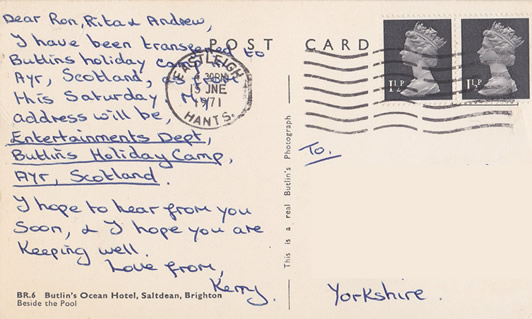 POST CARD
Dear Ron, Rita & Andrew,
I have been transferred to
Butlins holiday camp
Ayr, Scotland, as from
this Saturday My
address will be,
Entertainments Dept,
Butlins Holiday Camp,
Ayr, Scotland.
I hope to hear from you
Soon, & I hope you are
Keeping well.
Love from,
Kerry.
EASTLEIGH
JNE
1971
HANTS.
1½P
1½P
To.
Yorkshire.
This is a real Butlin's Photograph
BR.6 Butlin's Ocean Hotel, Saltdean, Brighton
Beside the Pool